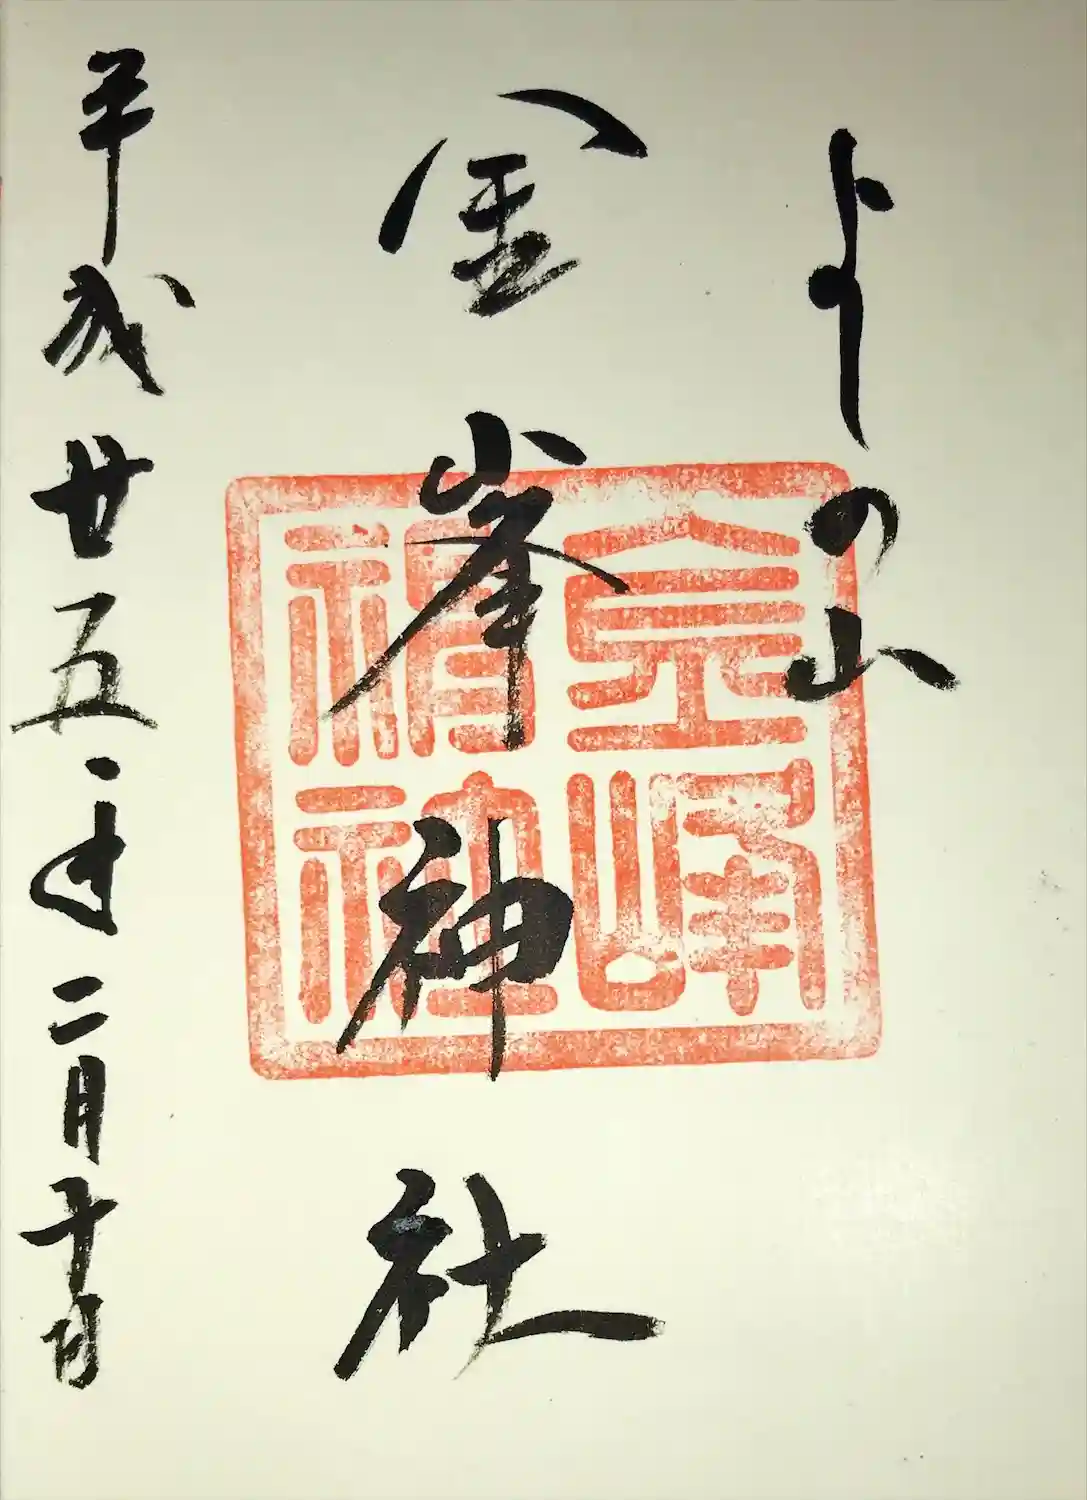 よしの山
金峯神社
金峰
神社
平成廿五年二月十日